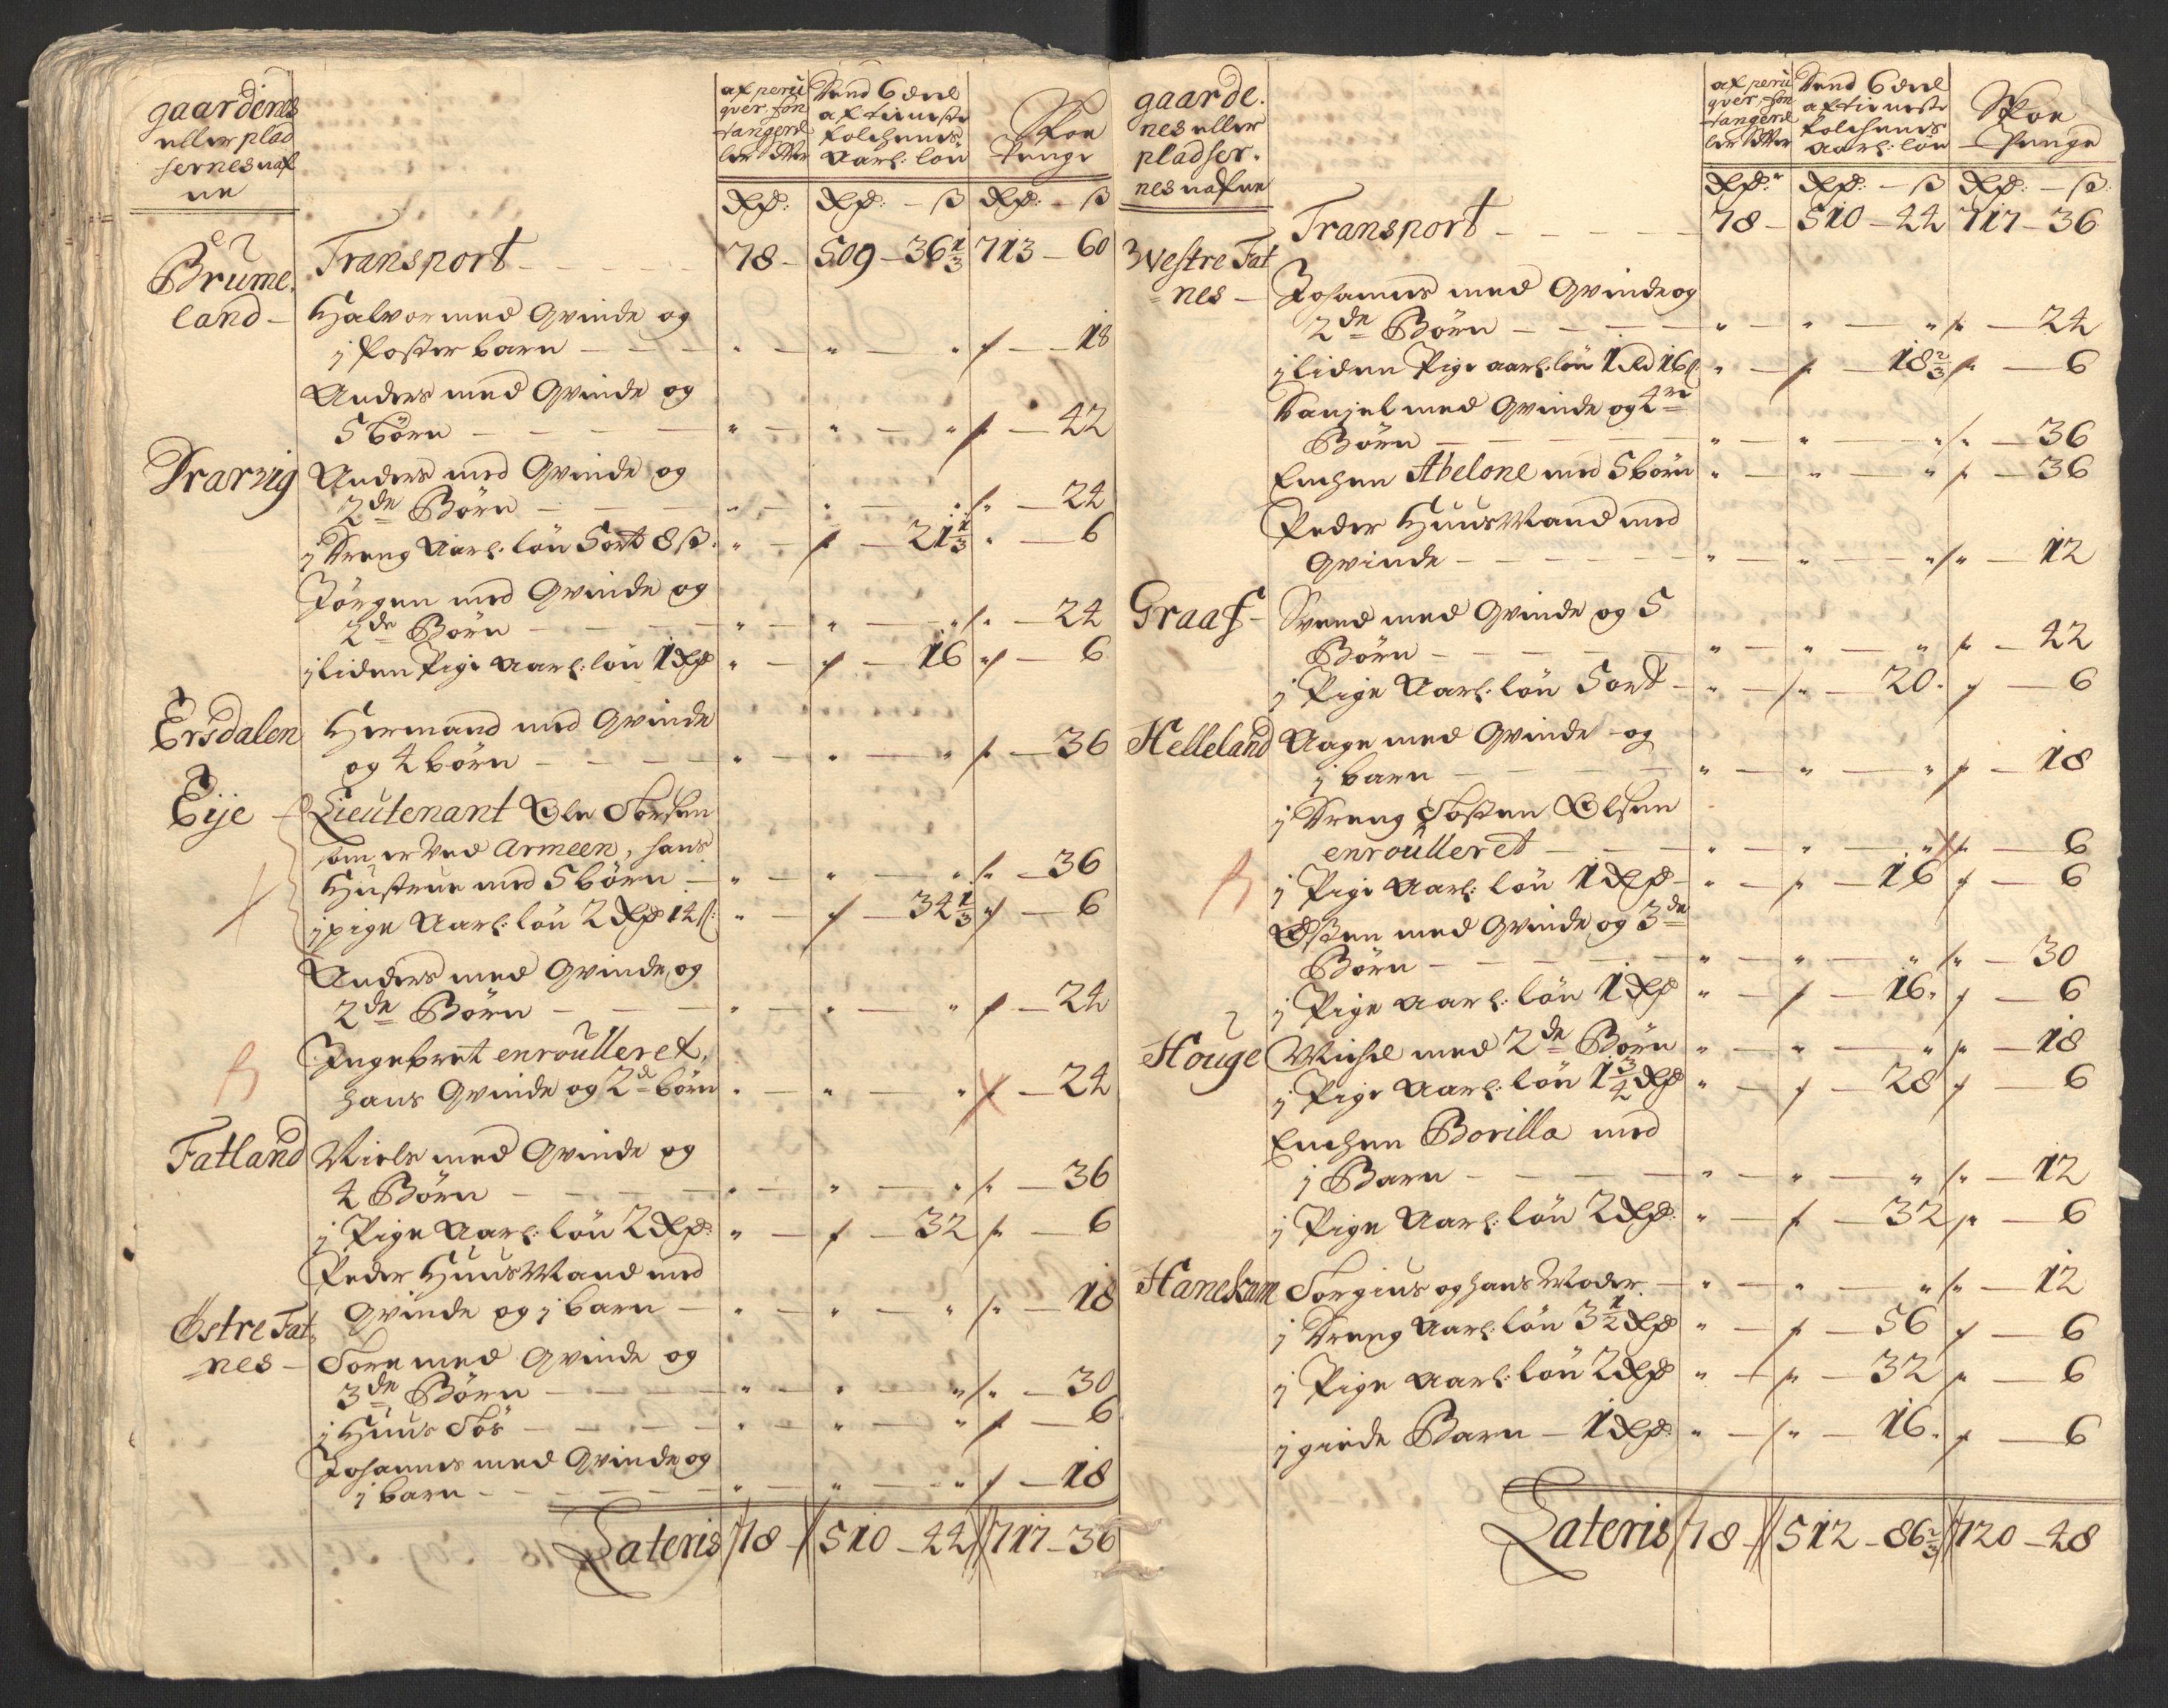 gaardenes
eller plad
sernes naf
ne
af peru
qver, fon
tanger el
ler sætter
Hvad 6 deel
af tieneste
folchenes
Aarl: løn
Skoe
Penge
Rd: Rd: – ß Rd: – ß
Transport – – – 78 – 509 – 36 1/3 713 – 60
Brume-
land –
Halvor med Qvinde og
j foster barn – – – " – " – " – 18
Anders med Qvinde og
5 börn – – – – " – " – " – 42
Drarvig
Anders med Qvinde og
2de Börn – – – " – " – " – 24
j Dreng Aarl: løn 5 ort 8 ß. " – " – 21 1/3 " – 6
Jörgen med Qvinde og
2de Börn – – – " – " – " – 24
j liden Pige Aarl: løn 1 Rd " – " – 16 " – 6
Ersdalen
Hermand med Qvinde
og 4 börn – – – " – " – " – 36
Eije –
Lieutenant Ole
som er ved Armeen, hans
Hustrue med 5 börn – " – " – " – 36
j pige Aarl: løn 2 Rd 14 ß: " – " – 34 1/3 " – 6
Anders med Qvinde og
2de Börn – – – " – " – " – 24
Ingebret enroulleret,
hans Qvinde og 2de börn " – " – " – 24
Fatland
Niels med Qvinde og
4 Börn – – – " – " – " – 36
j Pige Aarl: løn 2 Rd: " – " – 32 " – 6
Peder Huus Mand med
Qvinde og j barn – " – " – " – 18
Östre Fat
nes –
Tore med Qvinde og
3de Börn – – – " – " – " – 30
j Huus – – – " – " – " – 6
Johannes med Qvinde og
j barn – – – " – " – " – 18
Lateris 78 – 510 – 44 717 – 36
gaarde-
nes eller
pladser-
nes nafne
af peru
qver, fon
tanger el
ler sætter
Hvad 6 deel
af tieneste
folchenes
Aarl: løn
Skoe
Penge
Rd: Rd: – ß Rd: – ß
Transport – – – 78 – 510 – 44 717 – 36
Westre Fat
nes –
Johannes med Qvinde og
2de Börn – – – " – " – " – 24
j liden Pige aarl: løn 1 Rd 16 ß " – " – 18 2/3 " – 6
Danjel med Qvinde og 4re
Börn – – – " – " – " – 36
Enchen Abelone med 5 börn " – " – " – 36
Peder Huus Mand med
Qvinde – – – " – " – " – 12
Graaf –
Svend med Qvinde og 5
Börn – – – " – " – " – 42
j Pige Aarl: løn 5 ort – " – " – 20. " – 6
Helleland
Aage med Qvinde og
j barn – – – " – " – " – 18
j Dreng Tosten Olsen
enroulleret – – – " – " – " – 6
j Pige Aarl: løn 1 Rd – " – " – 16 " – 6
Östen med Qvinde og 3de
Börn – – – " – " – " – 30
j Pige aarl: løn 1 Rd " – " – 16. " – 6
Houge
Michel med 2de Börn " – " – " – 18
j Pige Aarl: løn 1 3/4 Rd " – " – 28 " – 6
Enchen Borilla med
j Barn – – – " – " – " – 12
j Pige Aarl: løn 2 Rd: " – " – 32 " – 6
Hanekam
Torgius og hans Moder – " – " – " – 12
j Dreng Aarl: løn 3 1/2 Rd " – " – 56 " – 6
j Pige aarl: løn 2 Rd " – " – 32 " – 6
j giede Barn – 1 Rd: " – " – 16. " – 6
Lateris 78 – 512 – 86 2/3 720 – 48